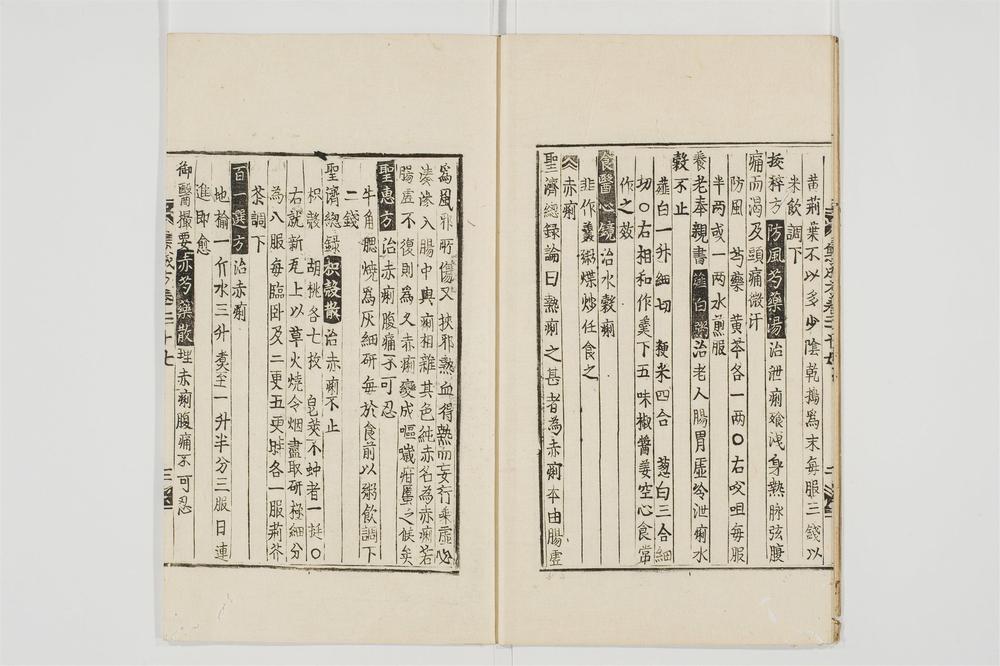 黃荊葉不以多少陰乾搗爲末每服三錢以
米飲調下
按稡方 防風芍藥湯 治泄痢飧洩身熱脉弦腹
痛而渴及頭痛微汗
防風 芍藥 黃芩各一兩〇右㕮咀每服
半兩或一兩水煎服
養老奉親書 薤白粥 治老人腸胃虛冷泄痢水
穀不止
薤白一升細切 粳米四合 葱白三合細
切〇右相和作羹下五味椒醬姜空心食常
作之效
食醫心鏡 治水穀痢
韭作羹粥煠炒任食之
赤痢
聖濟總録論曰熱痢之甚者為赤痢本由腸虛
爲風邪所傷又挾邪熱血得熱而妄行乘虛必
湊滲入腸中與痢相雜其色純赤名為赤痢若
腸虛不復則爲久赤痢變成嘔噦疳䘌之候矣
聖惠方 治赤痢腹痛不可忍
牛角䚡燒爲灰細研每於食前以粥飲調下
二錢
聖濟總録 枳殼散 治赤痢不止
枳殼 胡桃各七枚 皂莢不蚛者一挺〇
右就新瓦上以草火燒令烟盡取研極細分
為八服每臨卧及二更五更時各一服荊芥
茶調下
百一選方 治赤痢
地榆一斤水三升煑至一升半分三服日連
進即愈
御醫撮要 赤芍藥散 理赤痢腹痛不可忍